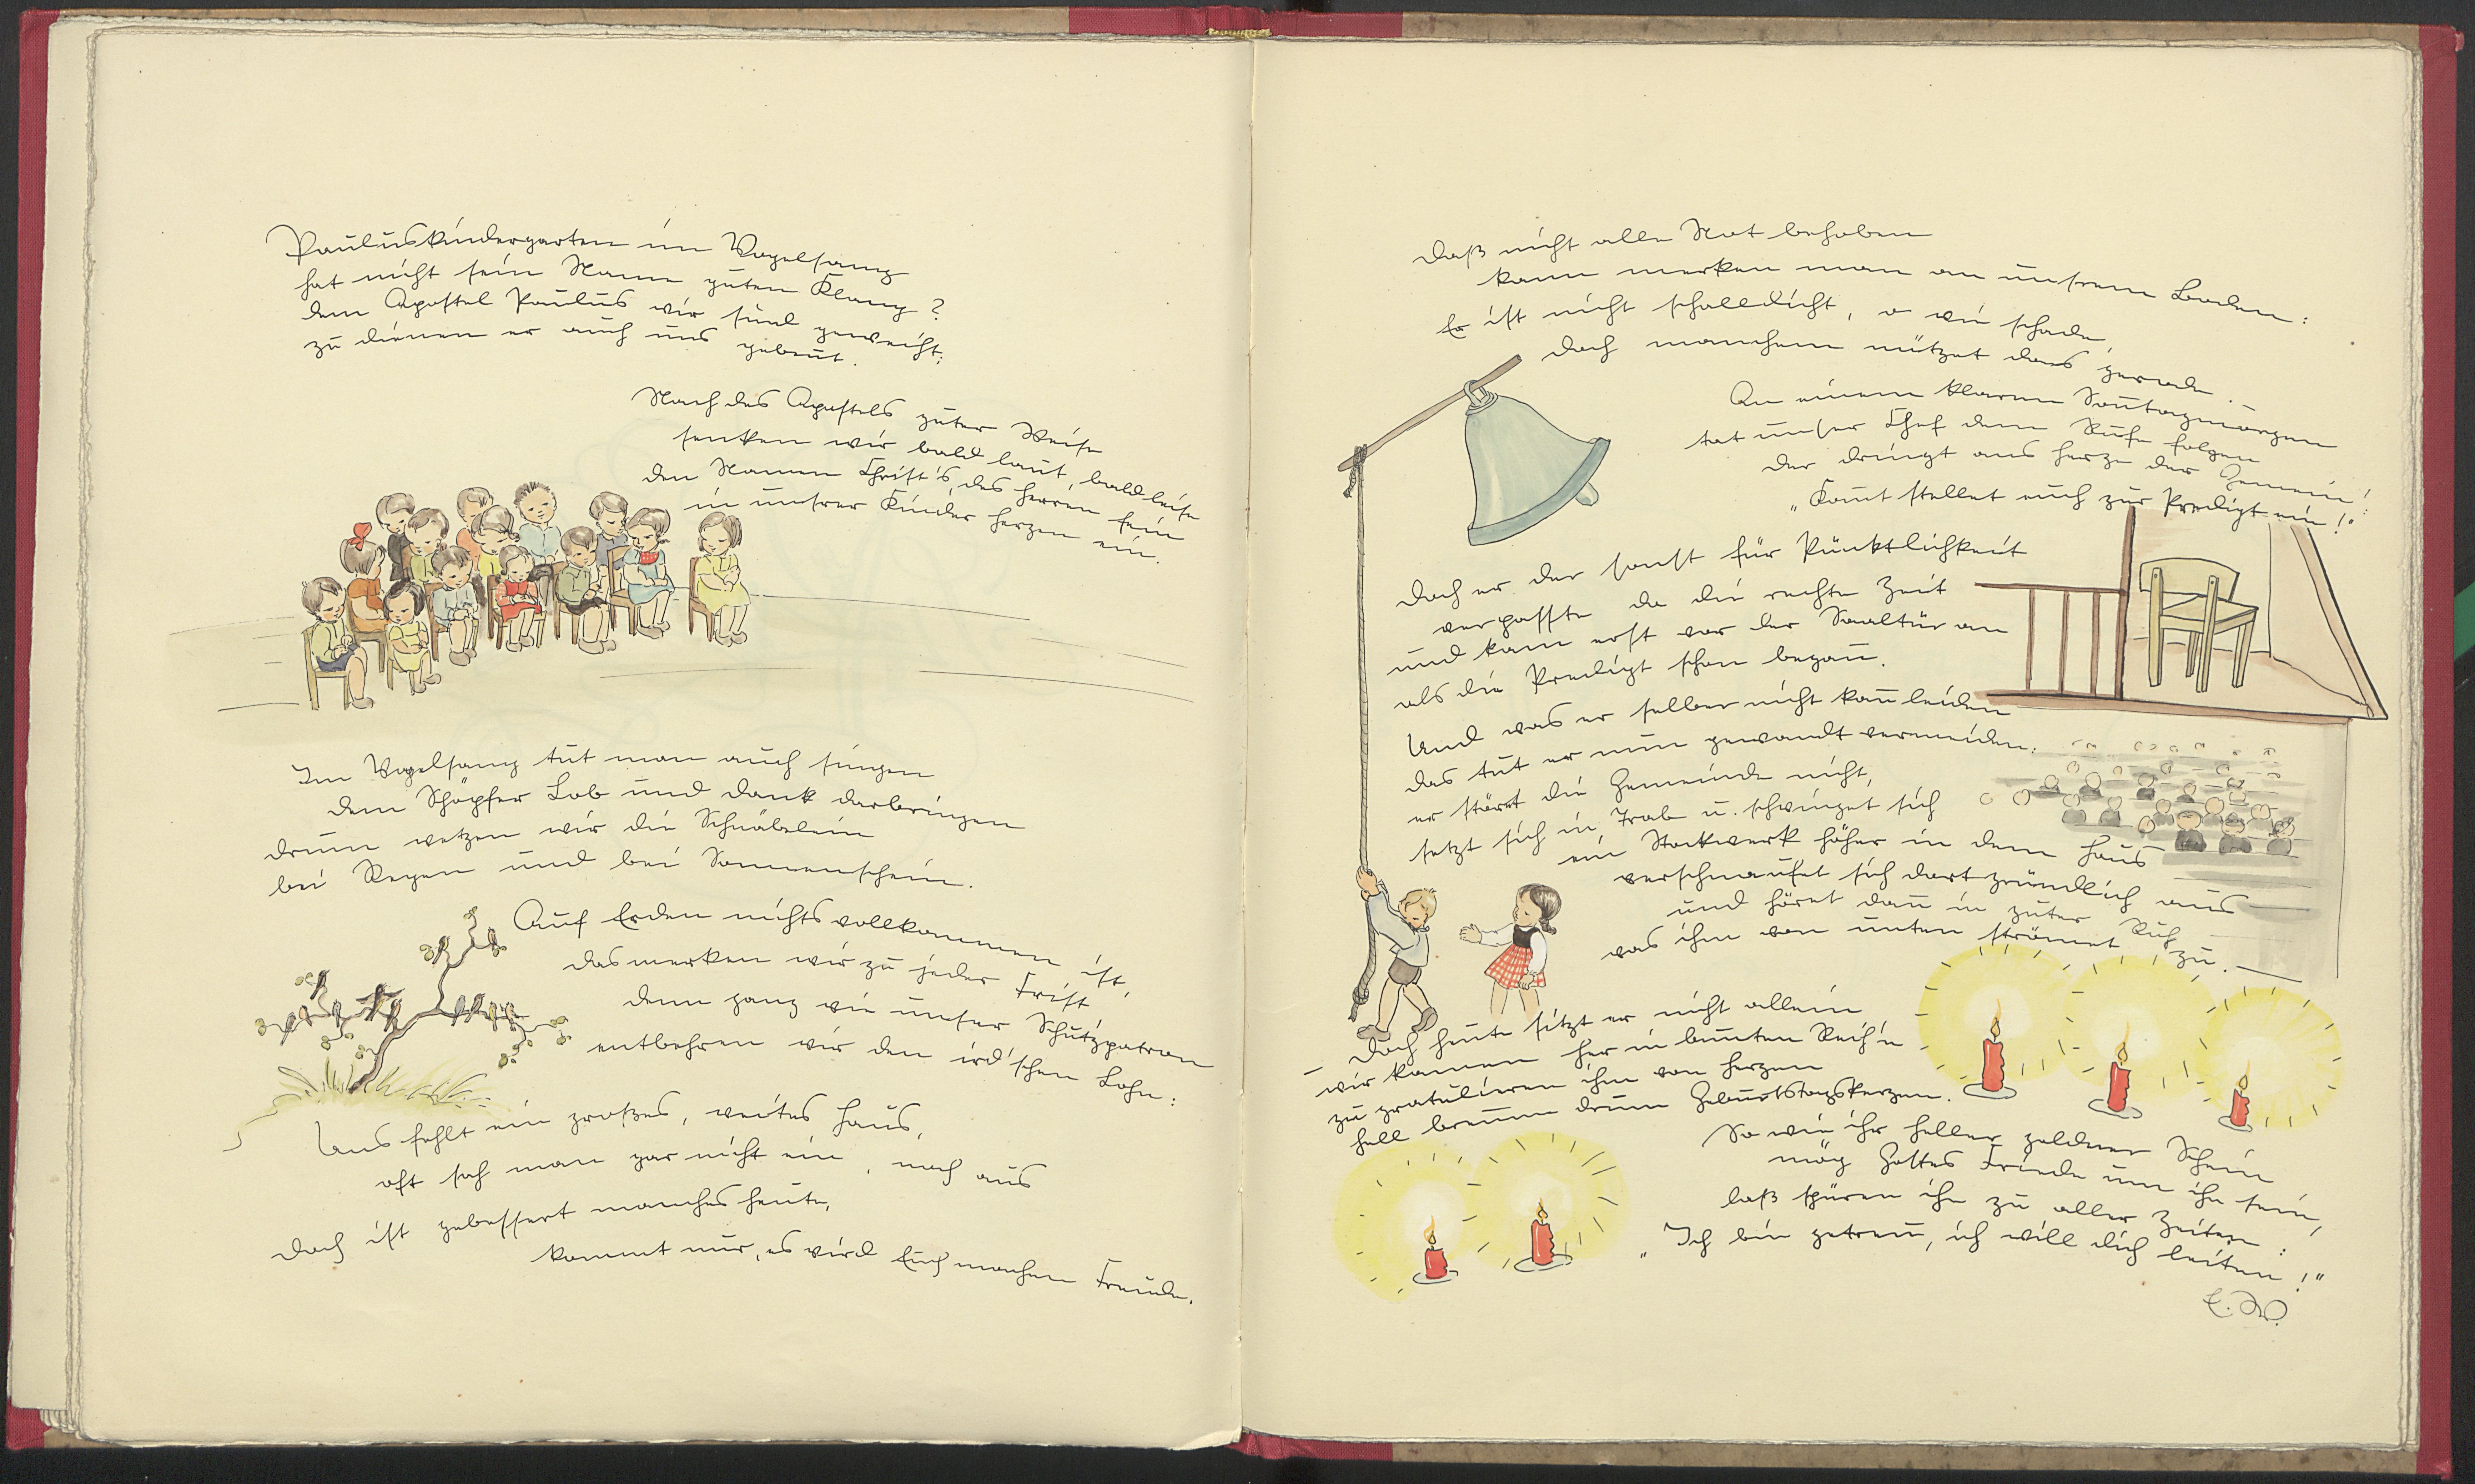 Pauluskindergarten im Vogelsang
hat nicht sein Name guten Klang?
dem Apostel Paulus wir sind geweiht;
zu dienen er auch uns gebeut.
Nach des Apostels guter Weise
senken wir bald laut, bald leise
den Namen Christi's, des Herren fein
in unsrer Kinder Herzen ein.
Im Vogelsang tut man auch singen
dem Schöpfer Lob und Dank darbringen
drum wetzen wir die Schnäbelein
bei Regen und bei Sonnenschein.
Auf Erden nichts vollkommen ist,
das merken wir zu jeder Frist
denn ganz wie unser Schutzpatron
entbehren wir den ird'schen Lohn:
Uns fehlt ein großes, weites Haus,
oft sah man gar nicht ein, noch aus
doch ist gebessert manches heute,
kommt nur, es wird Euch machen Freude.
Daß nicht alle Not behoben
kann merken man an unsrem Boden:
Er ist nicht schalldicht, o wie schade,
doch manchem nützet das gerade. –
An einem klaren Sontagmorgen
tat unser Chef dem Rufe folgen
der dringt ans Herze der Gemein'!:
„Komt stellet euch zur Predigt ein!"
Doch er der sonst für Pünktlichkeit
verpasste da die rechte Zeit
und kam erst vor der Saaltür an
als die Predigt schon began.
Und was er selber nicht kan leiden
das tut er nun gewandt vermeiden:
er stört die Gemeinde nicht,
setzt sich in Trab u. schwinget sich
ein Stockwerk höher in dem Haus
verschnaufet sich dort gründlich aus
und höret dan in guter Ruh
was ihm von unten strömet zu. –
Doch heute sitzt er nicht allein
wir kamen her in bunten Reih'n
zu gratulieren ihm von Herzen
hell brennen drum Geburtstagskerzen.
So wie ihr heller goldener Schein
mög Gottes Friede um ihn sein,
laß spüren ihn zu aller Zeiten:
„Ich bin getreu, ich will dich leiten!"